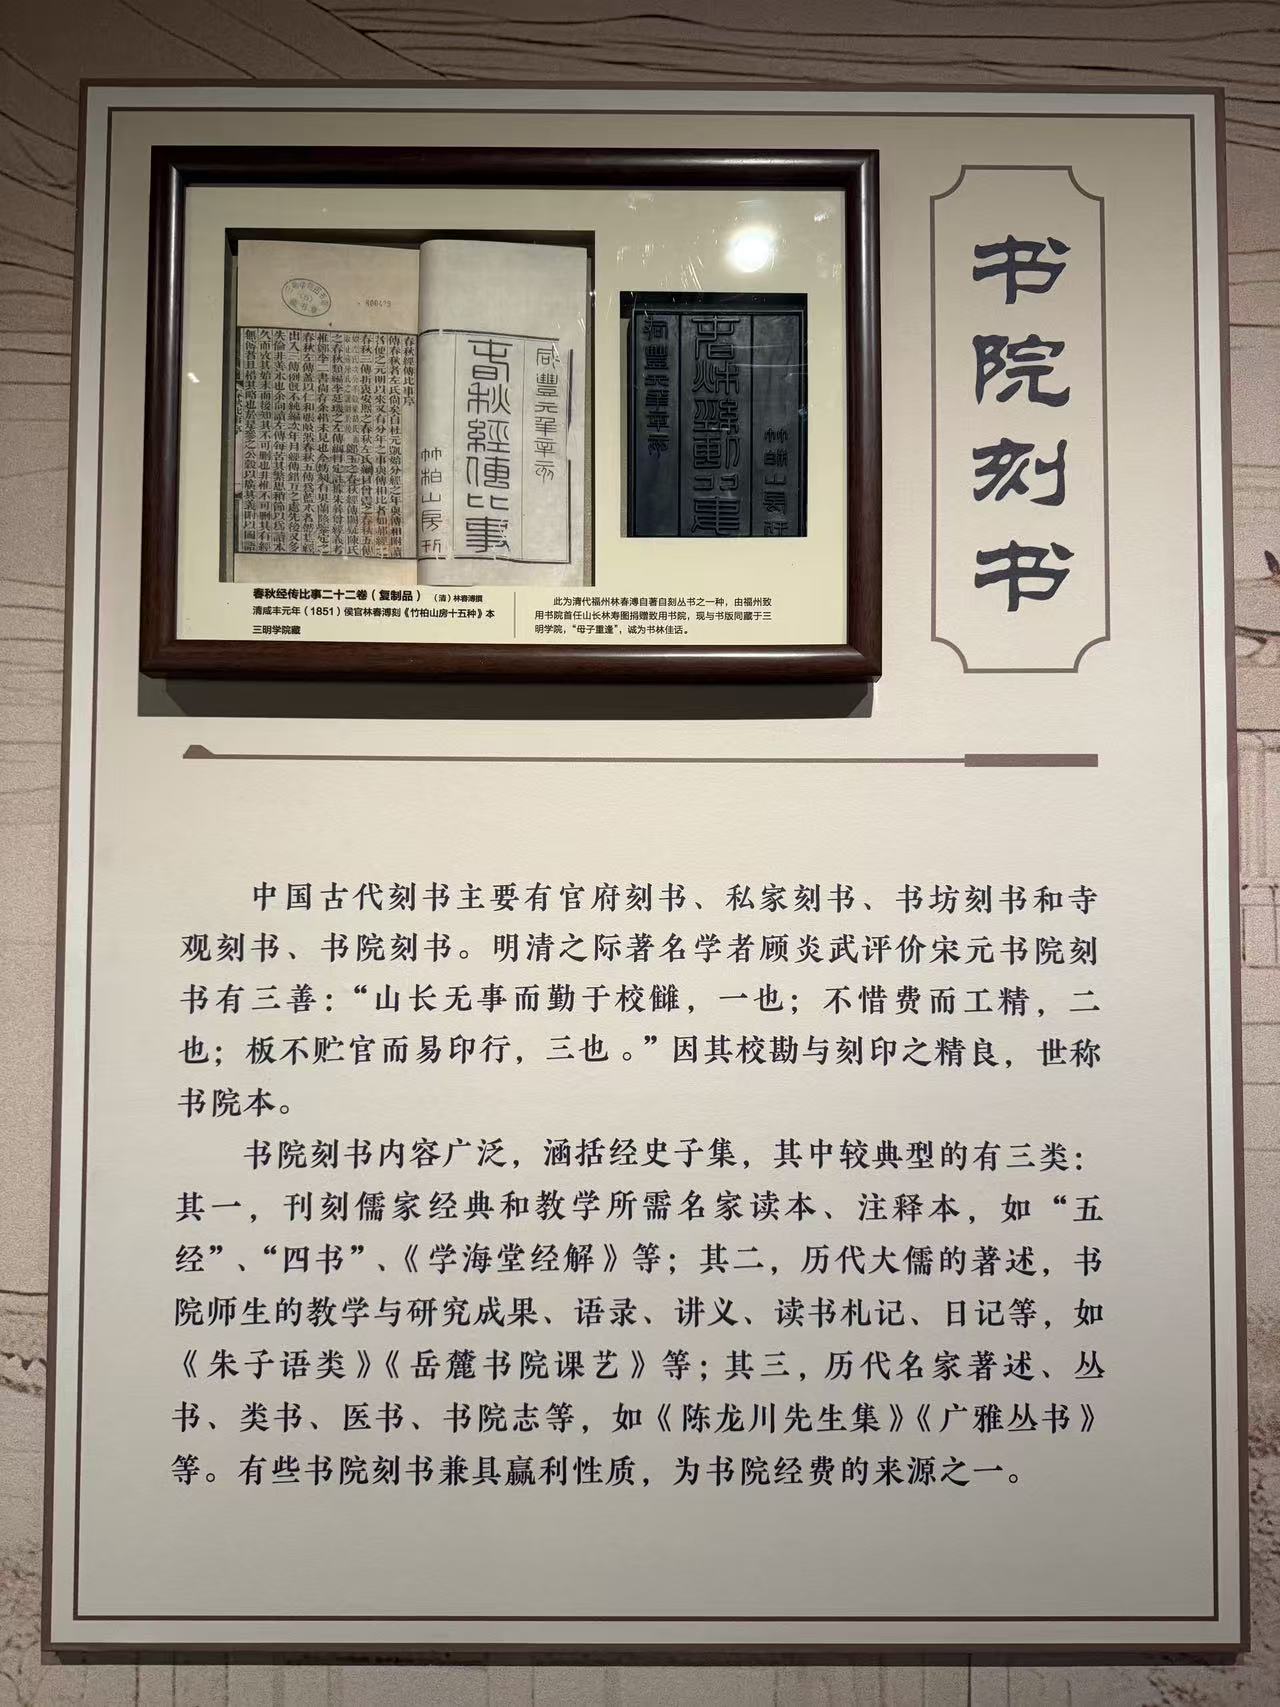 书院刻书
咸豐元年辛亥
春秋經傳比事
竹柏山房刊
800479
春秋經傳比事序
春秋经传比事二十二卷（复制品） （清）林春溥撰
清咸丰元年（1851）侯官林春溥刻《竹柏山房十五种》本
三明学院藏
此为清代福州林春溥自著自刻丛书之一种，由福州致
用书院首任山长林寿图捐赠致用书院，现与书版同藏于三
明学院，“母子重逢”，诚为书林佳话。
中国古代刻书主要有官府刻书、私家刻书、书坊刻书和寺
观刻书、书院刻书。明清之际著名学者顾炎武评价宋元书院刻
书有三善：“山长无事而勤于校雠，一也；不惜费而工精，二
也；板不贮官而易印行，三也。”因其校勘与刻印之精良，世称
书院本。
书院刻书内容广泛，涵括经史子集，其中较典型的有三类：
其一，刊刻儒家经典和教学所需名家读本、注释本，如“五
经”、“四书”、《学海堂经解》等；其二，历代大儒的著述，书
院师生的教学与研究成果、语录、讲义、读书札记、日记等，如
《朱子语类》《岳麓书院课艺》等；其三，历代名家著述、丛
书、类书、医书、书院志等，如《陈龙川先生集》《广雅丛书》
等。有些书院刻书兼具赢利性质，为书院经费的来源之一。